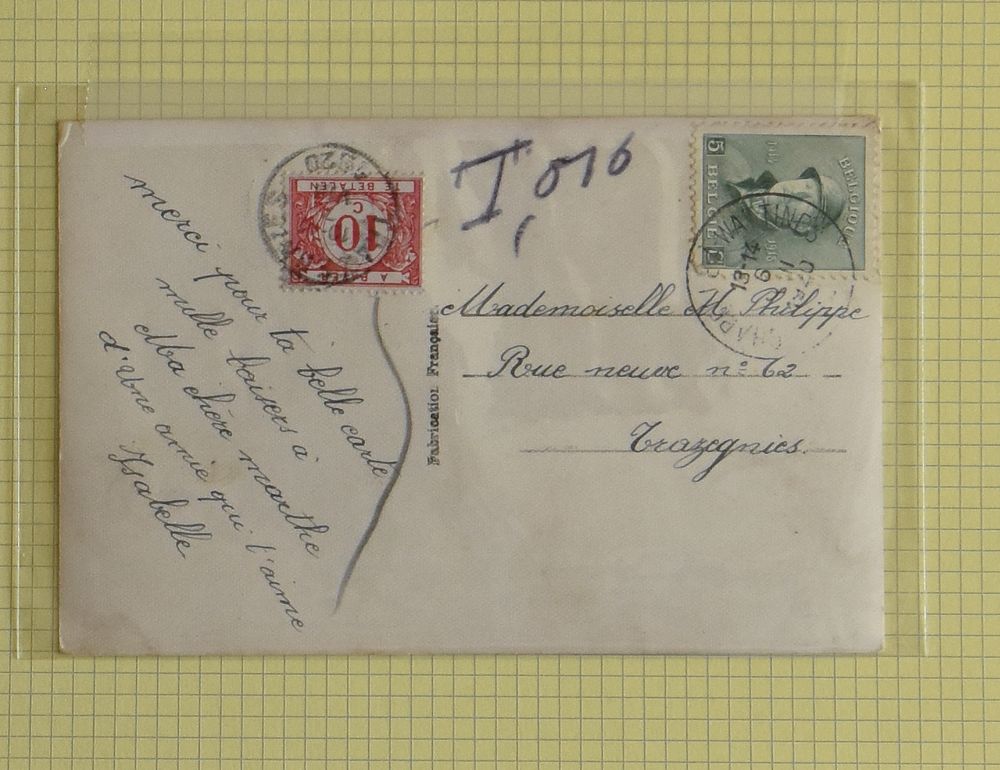 merci pour ta belle carte
mille baisers à
Ma chère marthe
d'une amie qui t'aime
Isabelle
1920
TE BETALEN
10
C
A PAYER
T 010
Fabrication Française
BELGIQUE
1914
1918
5 BELGIË C
13-14
6
Mademoiselle M Philippe
Rue neuve n° 62
Trazegnies.